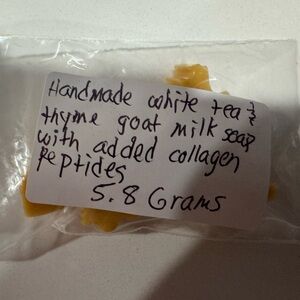 Handmade white tea &
thyme goat milk soap
with added collagen
Peptides
5.8 Grams